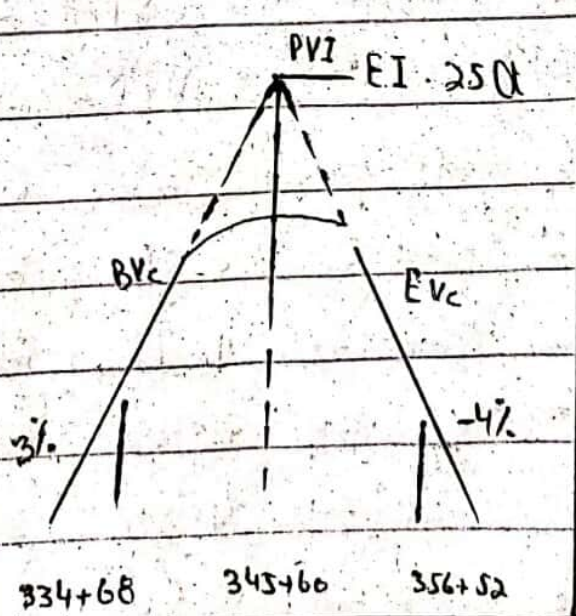 PVI
EI. 250
BVc
EVc
3%
-4%
334+68
345+60
356+52